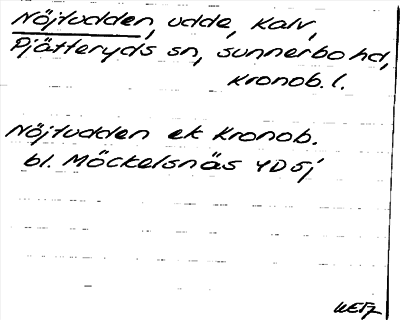 Nöjtudden, udde, Kalv,
Pjätteryds sn, Sunnerbo hd,
Kronob. l.
Nöjtudden ek Kronob.
bl. Möckelsnäs 4D5j